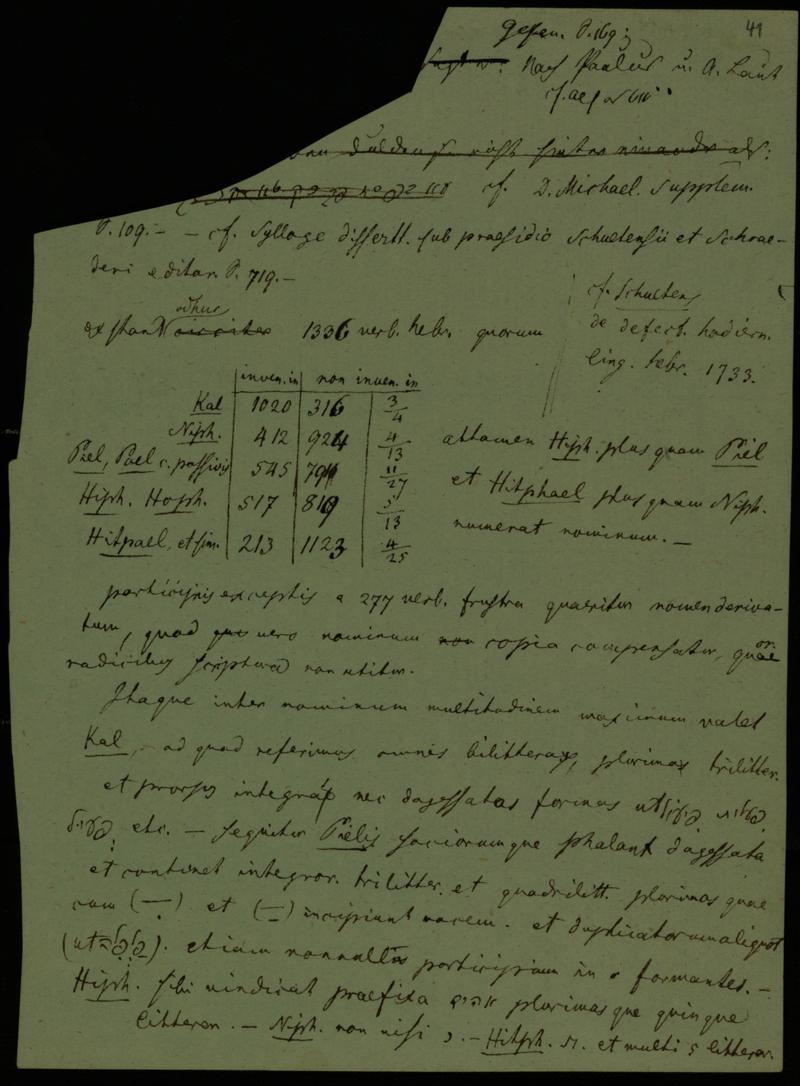 41
gesen. P. 169;
Nach Paulus u. A. Laut
cf.
dulden hinter einander als:
cf. D. Michael. Supplem.
P. 109. – – cf. Sylloge dissertt. sub praesidio Schultensii et Schroe-
deri editar. P. 719. –
cf. Schultens
de defect. hodiern.
ling. hebr. 1733.
adhuc
exstant 1336 verb. hebr. quorum
inven. in non inven. in
Kal 1020 316 3/4
Niph. 412 924 4/13
Piel, Pual c. passivis 545 791 11/27
Hiph. Hoph. 517 819 5/13
Hitpael, et sim. 213 1123 4/25
attamen Hiph. plus quam Piel
et Hitphael plus quam Niph.
numerat nominum. –
participiis exceptis a 277 verb. frustra quaeritur nomen deriva-
tum, quod vero nominum non copia compensatur, quor
radicibus scriptura non utitur.
Itaque inter nominum multitudinem maximum valet
Kal, ad quod referimus omnes bilitteras, plurimas trilitter.
et prorsus integras nec dagessatas formas ut
etc. – sequitur Pielis sociorumque phalanx dagessata
et continet integror. trilitter. et quadrilitt. plurimas quae
cum (–) et (–) incipiunt vocem. et duplicatorum aliquot
(ut ). etiam nonnullas participium in formantes. –
Hiph. sibi vindicat praefixa plurimasque quinque
litterar. – Niph. non nisi נ. – Hitph. ת. et multi 5 litterar.